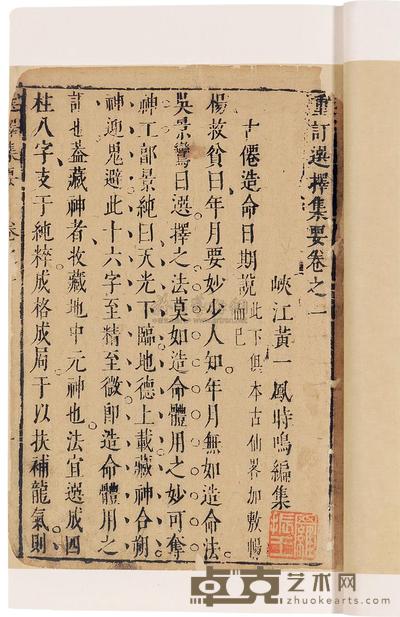 重訂選擇集要卷之一
峽江黃一鳳時鳴編集
古僊造命日期說此下俱本古仙畧加敷暢而已
楊救貧曰年月要妙少人知年月無如造命法
吳景鸞曰選擇之法莫如造命體用之妙可奪
神工郭景純曰天光下臨地德上載藏神合朔
神迎鬼避此十六字至精至微卽造命體用之
訣也葢藏神者收藏地中元神也法宜選成四
柱八字支干純粹成格成局于以扶補龍氣則
卓克艺术网
www.zhuokearts.com